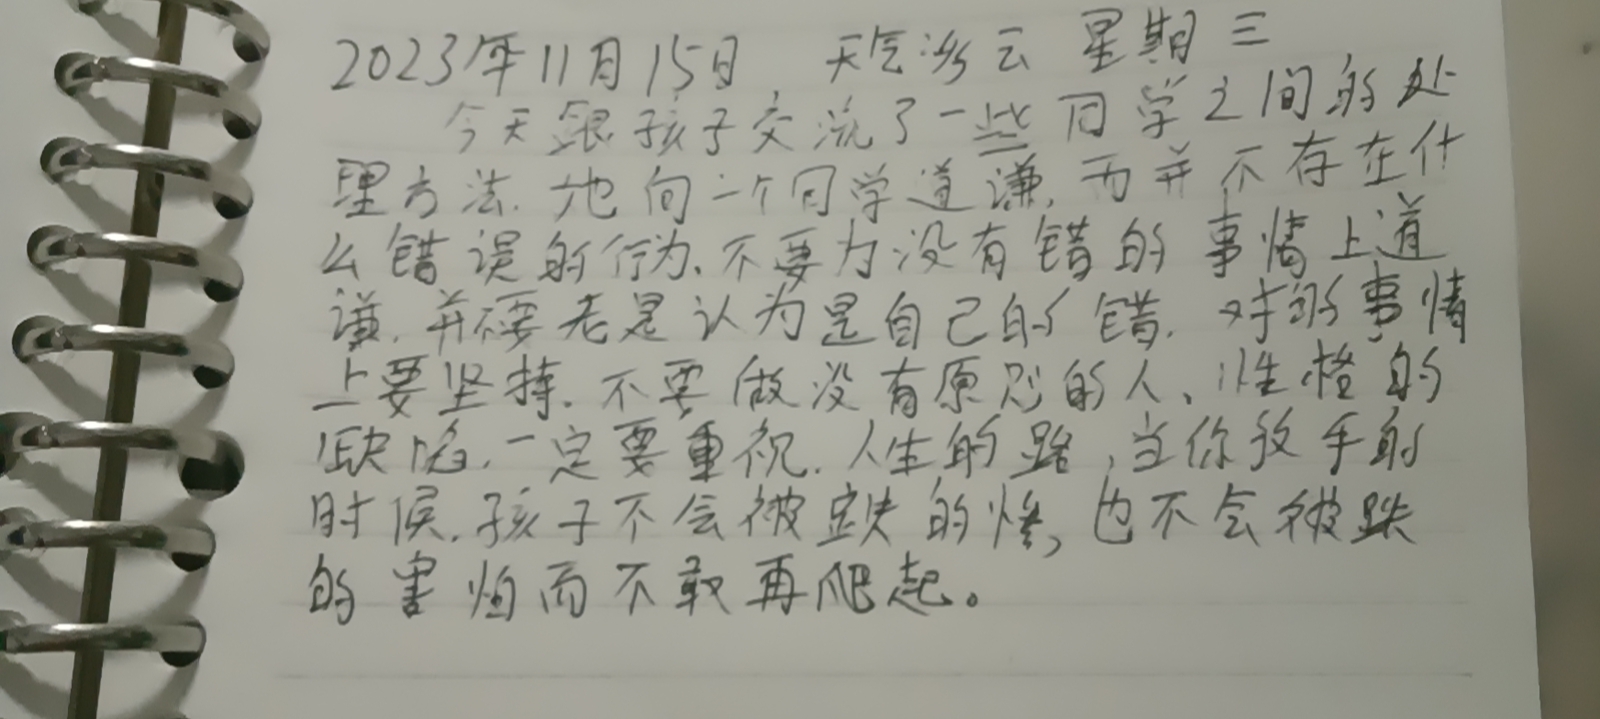 2023年11月15日 天气多云 星期三
今天跟孩子交流了一些同学之间的处
理方法.他向一个同学道谦,而并不存在什
么错误的行为.不要为没有错的事情上道
谦.并不要老是认为是自己的错.对的事情
上要坚持.不要做没有原则的人、性格的
缺陷.一定要重视.人生的路,当你放手的
时候.孩子不会被跌的惨,也不会被跌
的害怕而不敢再爬起。